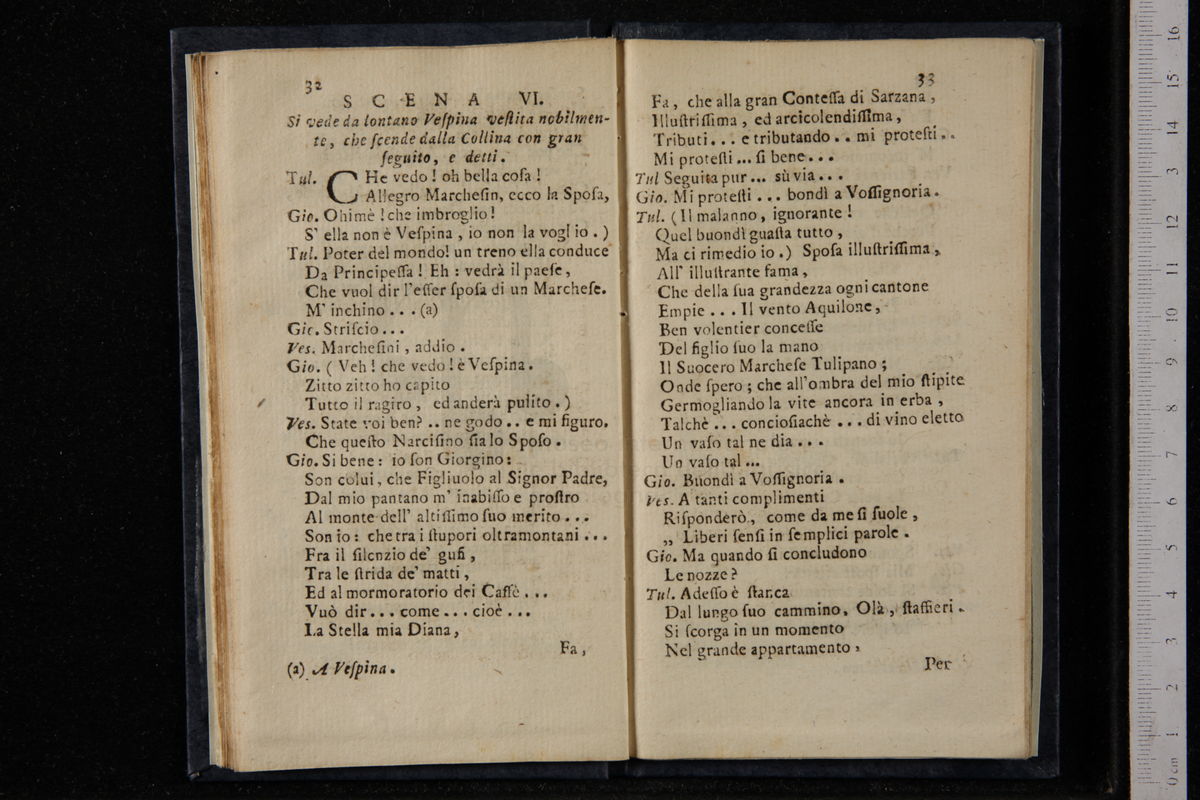 32
SCENA VI.
Si vede da lontano Veſpina veſtita nobilmen-
te, che ſcende dalla Collina con gran
ſeguito, e detti.
Tul. CHe vedo! oh bella coſa!
Allegro Marcheſin, ecco la Spoſa,
Gio. Ohimè! che imbroglio!
S' ella non è Veſpina, io non la voglio.)
Tul. Poter del mondo! un treno ella conduce
Da Principeſſa! Eh: vedrà il paeſe,
Che vuol dir l'eſſer ſpoſa di un Marcheſe.
M' inchino...(a)
Gio. Striſcio...
Ves. Marcheſini, addio.
Gio. (Veh! che vedo! è Veſpina.
Zitto zitto ho capito
Tutto il ragiro, ed anderà pulito.)
Ves. State voi ben? .. ne godo .. e mi figuro,
Che queſto Narciſino ſia lo Spoſo.
Gio. Si bene: io ſon Giorgino:
Son colui, che Figliuolo al Signor Padre,
Dal mio pantano m' inabiſſo e proſtro
Al monte dell' altiſſimo ſuo merito...
Son io: che tra i ſtupori oltramontani...
Fra il ſilenzio de' gufi,
Tra le ſtrida de' matti,
Ed al mormoratorio dei Caffè...
Vuò dir... come... cioè...
La Stella mia Diana,
Fa,
(a) A Veſpina.
33
Fa, che alla gran Conteſſa di Sarzana,
Illuſtriſſima, ed arcicolendiſſima,
Tributi... e tributando.. mi proteſti..
Mi proteſti... ſi bene...
Tul Seguita pur... sù via...
Gio. Mi proteſti... bondì a Voſſignoria.
Tul. (Il malanno, ignorante!
Quel buondì guaſta tutto,
Ma ci rimedio io.) Spoſa illuſtriſſima,
All' illuſtrante fama,
Che della ſua grandezza ogni cantone
Empie... Il vento Aquilone,
Ben volentier conceſſe
Del figlio ſuo la mano
Il Suocero Marcheſe Tulipano;
Onde ſpero; che all'ombra del mio ſtipite
Germogliando la vite ancora in erba,
Talchè... concioſiachè... di vino eletto
Un vaſo tal ne dia...
Un vaſo tal...
Gio. Buondì a Voſſignoria.
Ves. A tanti complimenti
Riſponderò, come da me ſi ſuole,
„ Liberi ſenſi in ſemplici parole.
Gio. Ma quando ſi concludono
Le nozze?
Tul. Adeſſo è ſtanca
Dal lungo ſuo cammino. Olà, ſtaffieri.
Si ſcorga in un momento
Nel grande appartamento,
Per
0 cm 1 2 3 4 5 6 7 8 9 10 11 12 13 14 15 16